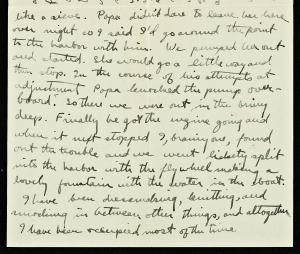 like a sieve. Papa didn't dare to leave her here
over night so I said I'd go around the point
to the harbor with him. We pumped her out
and started. She would go a little way and
then stop. In the course of his attempts at
adjustment Papa knocked the pump over-
board. So there we were out in the briny
deep. Finally he got the engine going and
when it next stopped I, brainy one, found
out the trouble and we went lickety split
into the harbor with the fly wheel making a
lovely fountain with the water in the boat.
I have been dressmaking, knitting, and
smocking in between other things, and altogether
I have been occupied most of the time.